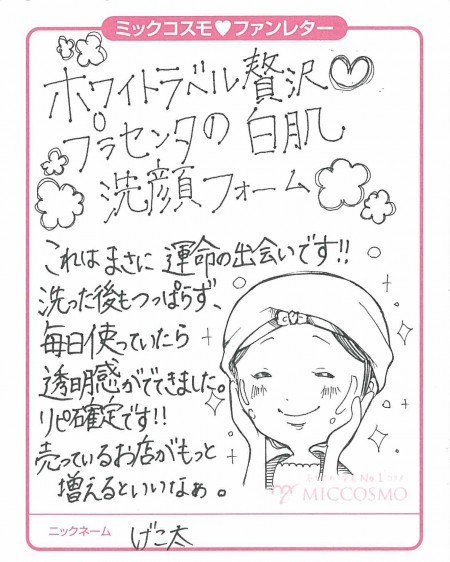 ミックコスモ♥ファンレター
ホワイトラベル贅沢♡
プラセンタの白肌
洗顔フォーム
これはまさに運命の出会いです!!
洗った後もつっぱらず、
毎日使っていたら
透明感がでてきました。
リピ確定です!!
売っているお店がもっと
増えるといいなぁ。
No.1
MICCOSMO
ニックネーム げこ太